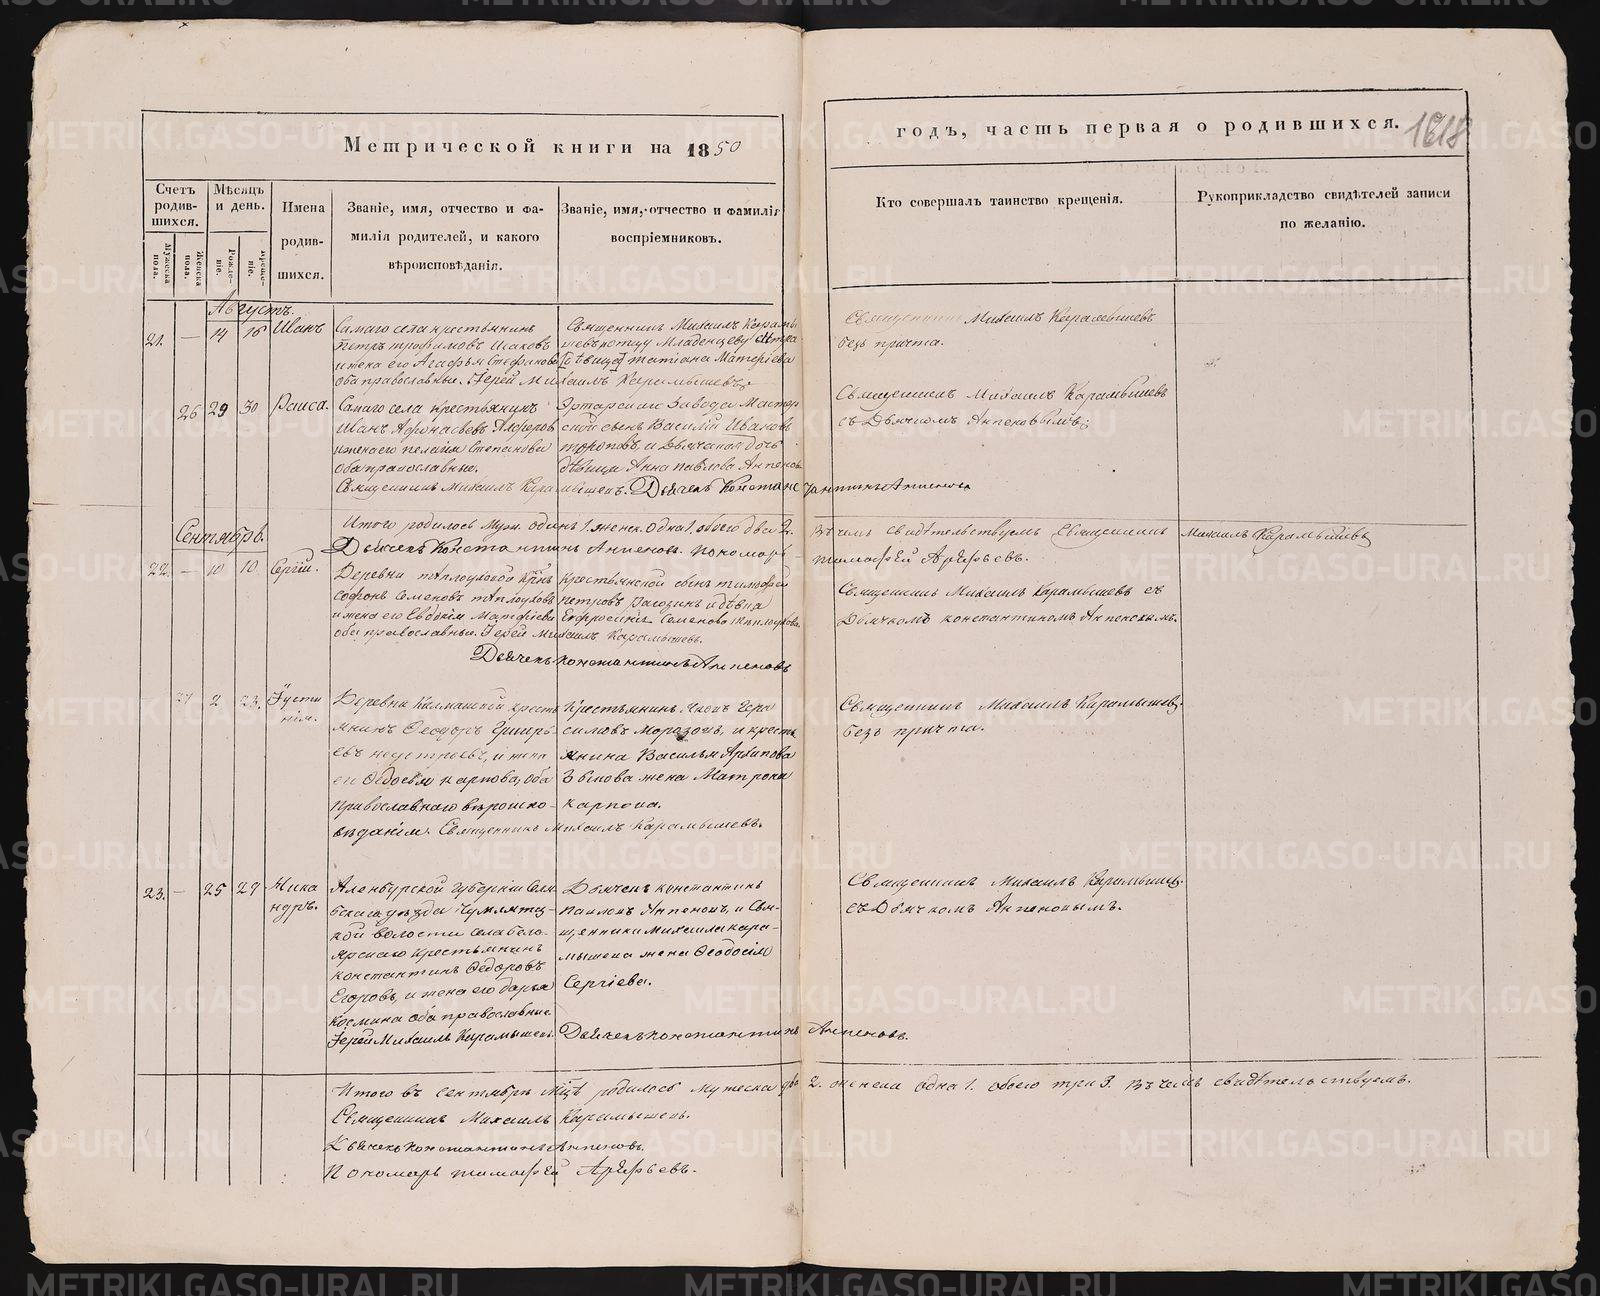 Метрической книги на 1850
годъ, часть первая о родившихся.
1618
Счетъ родив-шихся.
Мужеска пола.
Женска пола.
Мѣсяцъ и день.
Рожде-ніе.
Креще-ніе.
Имена родив-шихся.
Званіе, имя, отчество и фа-
милія родителей, и какого
вѣроисповѣданія.
Званіе, имя, отчество и фамилія
воспріемниковъ.
Кто совершалъ таинство крещенія.
Рукоприкладство свидѣтелей записи
по желанію.
Августъ.
21. — 14 16 Иванъ
Самаго села крестьянинъ
Петръ Трофимовъ Исаковъ
и жена его Агафья Стефанова
оба православные. Іерей Михаилъ Карамышевъ
Священникъ Михаилъ Карамы
Татіана
Священникъ Михаилъ Карамышевъ
безъ причта.
26 29 30 Раиса.
Самаго села крестьянинъ
Иванъ Афонасьевъ
и жена его Пелагія Степанова
оба православные.
Священникъ Михаилъ Карамышевъ. Дьячекъ Константинъ Анпеновъ
завода Мастер
ской сынъ Василій Ивановъ
Тороповъ, и Дьячкова дочь
дѣвица Анна Павлова Анпенова
Священникъ Михаилъ Карамышевъ
съ Дьячкомъ Анпеновымъ.
Итого родилось Муж. одинъ 1. женск. одна 1. обоего два 2. Въ чемъ свидѣтельствуемъ Священникъ Михаилъ Карамышевъ
Дьячекъ Константинъ Анпеновъ. Пономарь Тимофей Арефьевъ.
Сентябрь.
22. — 10 10 Сергій.
Деревни
Софонъ Семеновъ
и жена его Евдокія Матфіева
оба православные. Іерей Михаилъ Карамышевъ.
Дьячекъ Константинъ Анпеновъ
Крестьянской сынъ Тимофей
Петровъ Рагозинъ и дѣвица
Ефросинія Семенова
Священникъ Михаилъ Карамышевъ съ
Дьячкомъ Константиномъ Анпеновымъ.
27 2 23. Іусти
нія.
Деревни Калмацкой кресть
янинъ Феодоръ Григорь
евъ и жена
его Федосья Карпова, оба
православнаго вѣроиспо-
вѣданія. Священникъ Михаилъ Карамышевъ.
Крестьянинъ Яковъ Гера
симовъ Морозовъ, и кресть
янина Василья Архипова
жена Матрона
Карпова.
Священникъ Михаилъ Карамышевъ.
безъ причта.
23. — 25 27 Ника
ндръ.
Аленбурской Губерніи Челя
бскаго уѣзда Чумляц-
кой волости села Бело-
ярскаго крестьянинъ
Константинъ Федоровъ
Егоровъ, и жена его Дарья
Космина оба православные
Іерей Михаилъ Карамышевъ. Дьячекъ Константинъ Анпеновъ.
Дьячекъ Константинъ
Павловъ Анпеновъ, и Свя-
щенника Михаила Кара-
мышева жена Феодосія
Сергіева.
Священникъ Михаилъ Карамышевъ.
съ Дьячкомъ Анпеновымъ.
Итого въ сентябрѣ мцѣ родилось мужеска два 2. женска одна 1. обоего три 3. Въ чемъ свидѣтельствуемъ.
Священникъ Михаилъ Карамышевъ.
Дьячекъ Константинъ Анпеновъ.
Пономарь Тимофей Арефьевъ.
METRIKI.GASO-URAL.RU